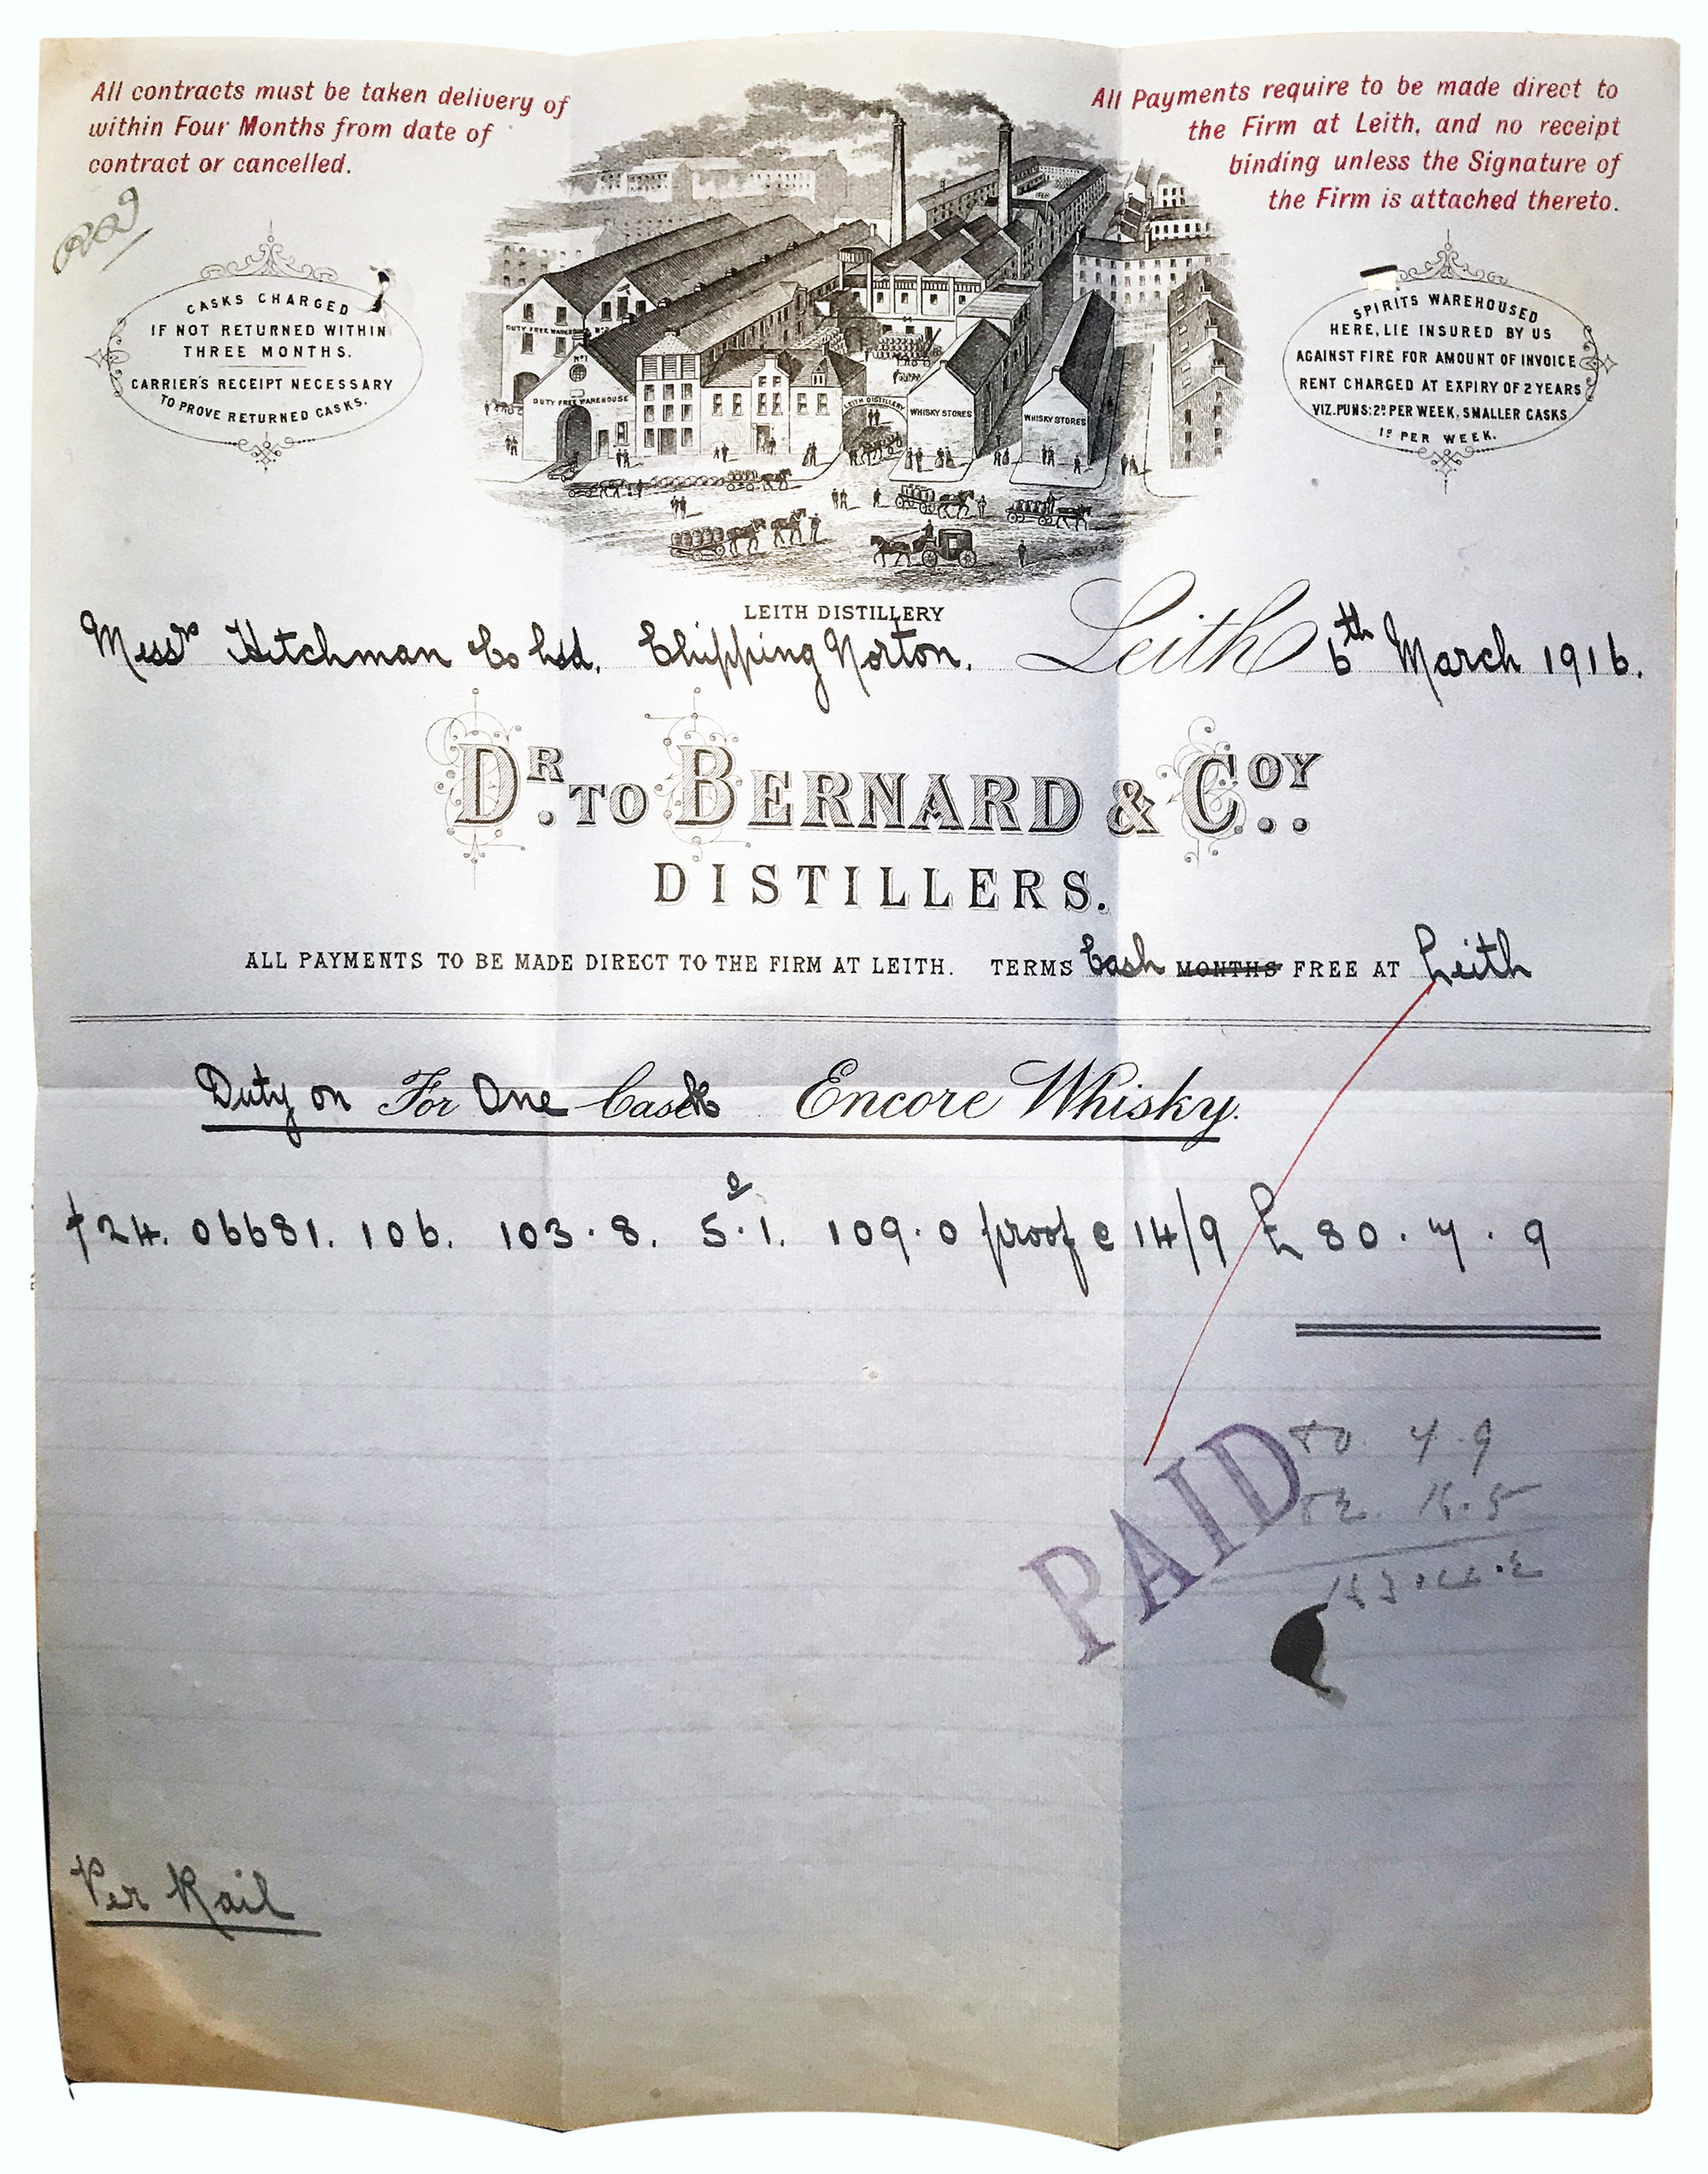 All contracts must be taken delivery of
within Four Months from date of
contract or cancelled.
All Payments require to be made direct to
the Firm at Leith, and no receipt
binding unless the Signature of
the Firm is attached thereto.
CASKS CHARGED
IF NOT RETURNED WITHIN
THREE MONTHS.
CARRIER'S RECEIPT NECESSARY
TO PROVE RETURNED CASKS.
SPIRITS WAREHOUSED
HERE, LIE INSURED BY US
AGAINST FIRE FOR AMOUNT OF INVOICE
RENT CHARGED AT EXPIRY OF 2 YEARS
VIZ. PUNS: 2D PER WEEK, SMALLER CASKS
1D PER WEEK.
DUTY FREE WAREHOUSE No 2
No 1
DUTY FREE WAREHOUSE
LEITH DISTILLERY
WHISKY STORES
WHISKY STORES
LEITH DISTILLERY
Messrs Hitchman Co Ltd. Chipping Norton. Leith 6th March 1916.
DR. TO BERNARD & COY..
DISTILLERS.
ALL PAYMENTS TO BE MADE DIRECT TO THE FIRM AT LEITH. TERMS Cash MONTHS FREE AT Leith
Duty on For One Cask Encore Whisky.
24. 06681. 106. 103.8. 5.1. 109.0 proof @ 14/9 £ 80.7.9
PAID
80. 7.9
Per Rail